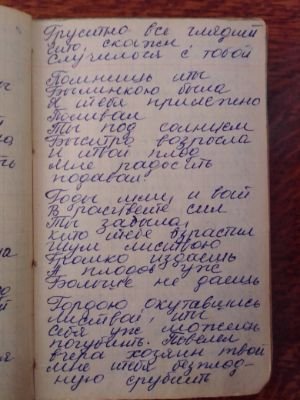 Грустно все глядели
что, скажи
Случилося с тобой
Помнишь ты
Былинкою была
Я тебя прилежно
Поливал
Ты под солнцем
Быстро возросла
И твой плод
Мне радость
подавал.
Годы шли, и вот
В расцвете сил
Ты забыла,
кто тебя взрастил
Шум листвою
Громко издаешь
А плодов уж
Больше не даешь
Гордою окутавшись
листвой, ты
Себя уж можешь
погубить. Повелел
вчера хозяин твой
мне тебя бесплод-
ную срубить